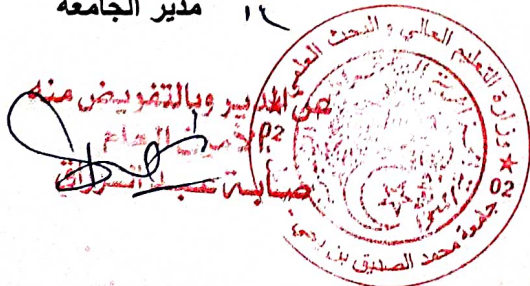 مدير الجامعة
عن المدير وبالتفويض منه
الأمين العام
صايبة عبد الرزاق
وزارة التعليم العالي و البحث العلمي
جامعة محمد الصديق بن يحي
02